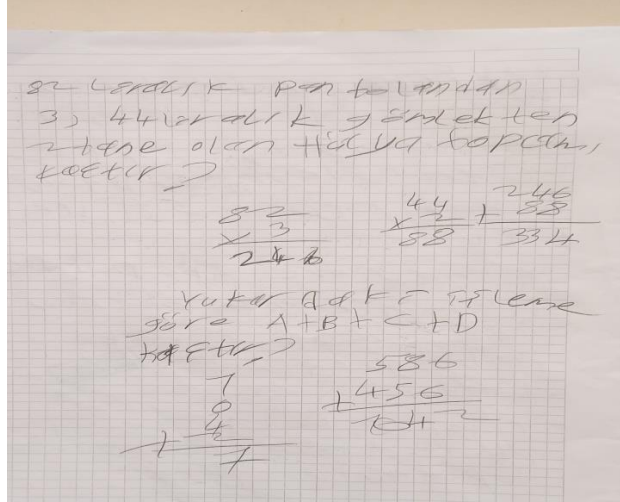 82 Liralık pantolandan
3, 44 liralık gömlekten
2 tane olan Hülya topcam,
kaçtır?
82
x 3
246
44
x 2
88
246
+ 88
334
Yukarıdaki işleme
göre A+B+C+D
kaçtır?
1
0
4
+ 2
7
586
+ 456
1042